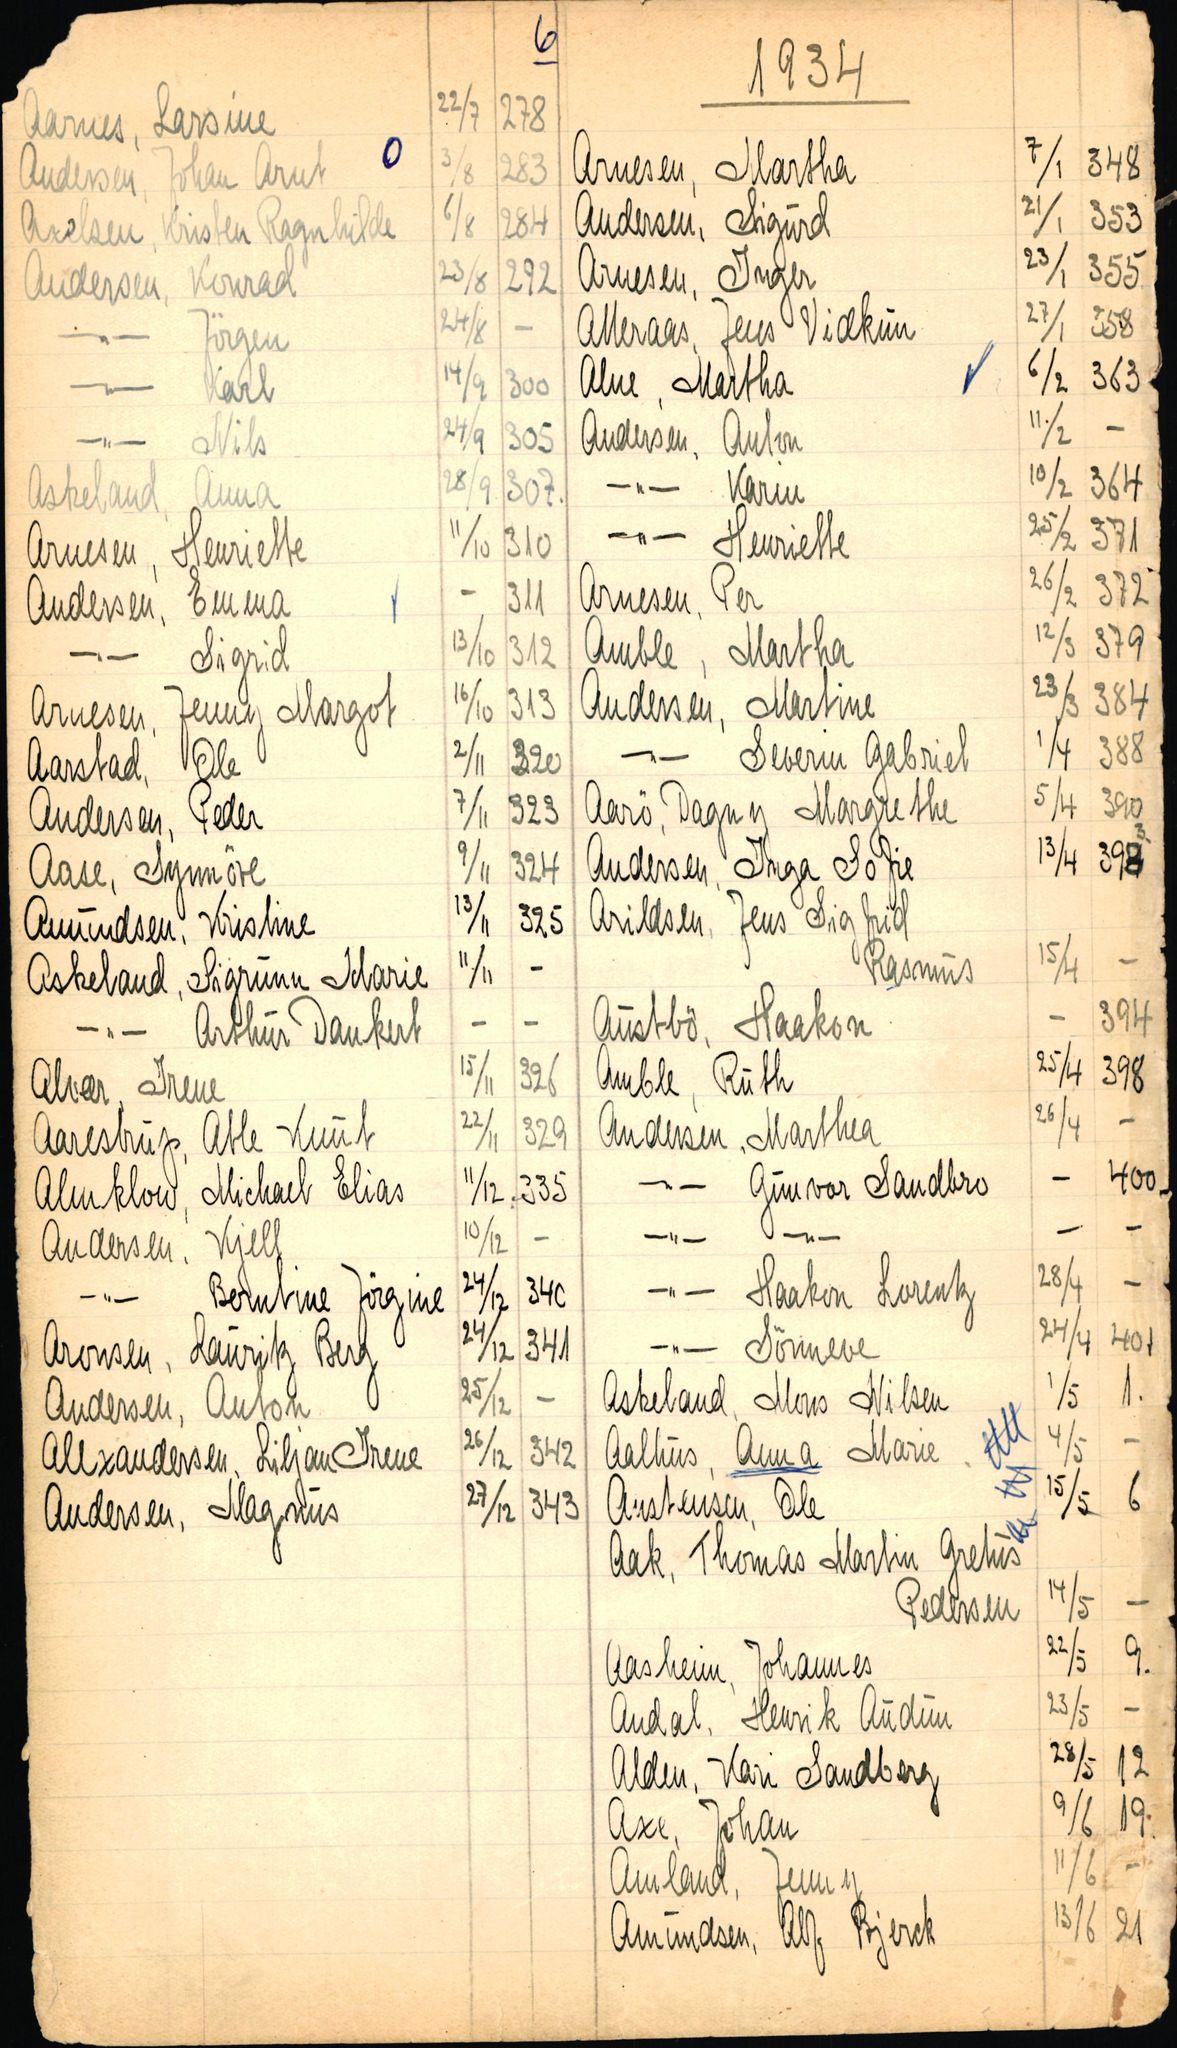 6
Aarnes, Larsine 22/7 278
Andersen, Johan Arnt 0 3/8 283
Axelsen, Kristen Ragnhilde 6/8 284
Andersen, Konrad 23/8 292
—"— Jörgen 24/8 -
—"— Karl 14/9 300
—"— Nils 24/9 305
Askeland, Anna 28/9 307.
Arnesen, Henriette 11/10 310
Andersen, Emma - 311
—"— Sigrid 13/10 312
Arnesen, Jenny Margot 16/10 313
Aarstad, Ole 2/11 320
Andersen, Peder 7/11 323
Aase, Synnöve 9/11 324
Amundsen, Kristine 13/11 325
Askeland, Sigrunn Marie 11/11 -
—"— Arthur Dankert - -
Alvær, Irene 15/11 326
Aarestrup, Atle Knut 22/11 329
Almklow, Michael Elias 11/12 335
Andersen, Kjell 10/12 -
—"— Berntine Jörgine 24/12 340
Aronsen, Lauritz Berg 24/12 341
Andersen, Anton 25/12 -
Alexandersen, Liljan Irene 26/12 342
Andersen, Magnus 27/12 343
1934
Arnesen, Martha 7/1 348
Andersen, Sigurd 21/1 353
Arnesen, Inger 23/1 355
Alleraas, Jens Vidkun 27/1 358
Alne, Martha ✓ 6/2 363
Andersen, Anton 11/2 -
—"— Karin 10/2 364
—"— Henriette 25/2 371
Arnesen, Per 26/2 372
Amble, Martha 12/3 379
Andersen, Martine 23/3 384
—"— Severin Gabriel 1/4 388
Aarö, Dagny Margrethe 5/4 390
Andersen, Inga Sofie 13/4 393
Arildsen, Jens Sigfrid
Rasmus 15/4 -
Austbö, Haakon - 394
Amble, Ruth 25/4 398
Andersen, Marthea 26/4 -
—"— Gunvor Sandbro - 400
—"— —"— - -
—"— Haakon Lorentz 28/4 -
—"— Sönneve 24/4 401
Askeland, Mons Nilsen 1/5 1.
Aalhus, Anna Marie 4/5 -
Arstensen, Ole 15/5 6
Aak, Thomas Martin Gretus
Pedersen 14/5 -
Aasheim, Johannes 22/5 9.
Andal, Henrik Audun 23/5 -
Alden, Kari Sandberg 28/5 12
Axe, Johan 9/6 19.
Amland, Jenny 11/6 -
Amundsen, Alf Bjerck 13/6 21